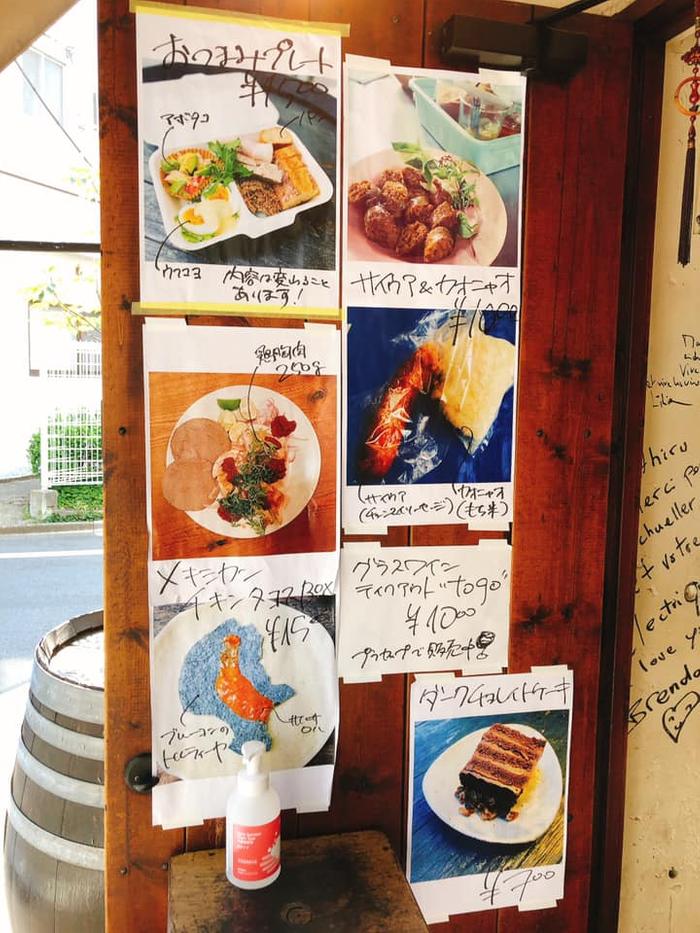 おつまみプレート
¥1500
アボカド
パン
ウフマヨ
内容は変わること
あります!
サイウア&カオニャオ
¥1000
サイウア
(チェンマイソーセージ)
カオニャオ
(もち米)
鶏胸肉
250g
メキシカン
チキンタコスBOX
¥15
ブルーコーンの
トルティーヤ
グラスワイン
テイクアウト"to go"
¥1000
プラカップで販売中
ダークチョコレイトケーキ
¥700
Merci po
love y
Brenda